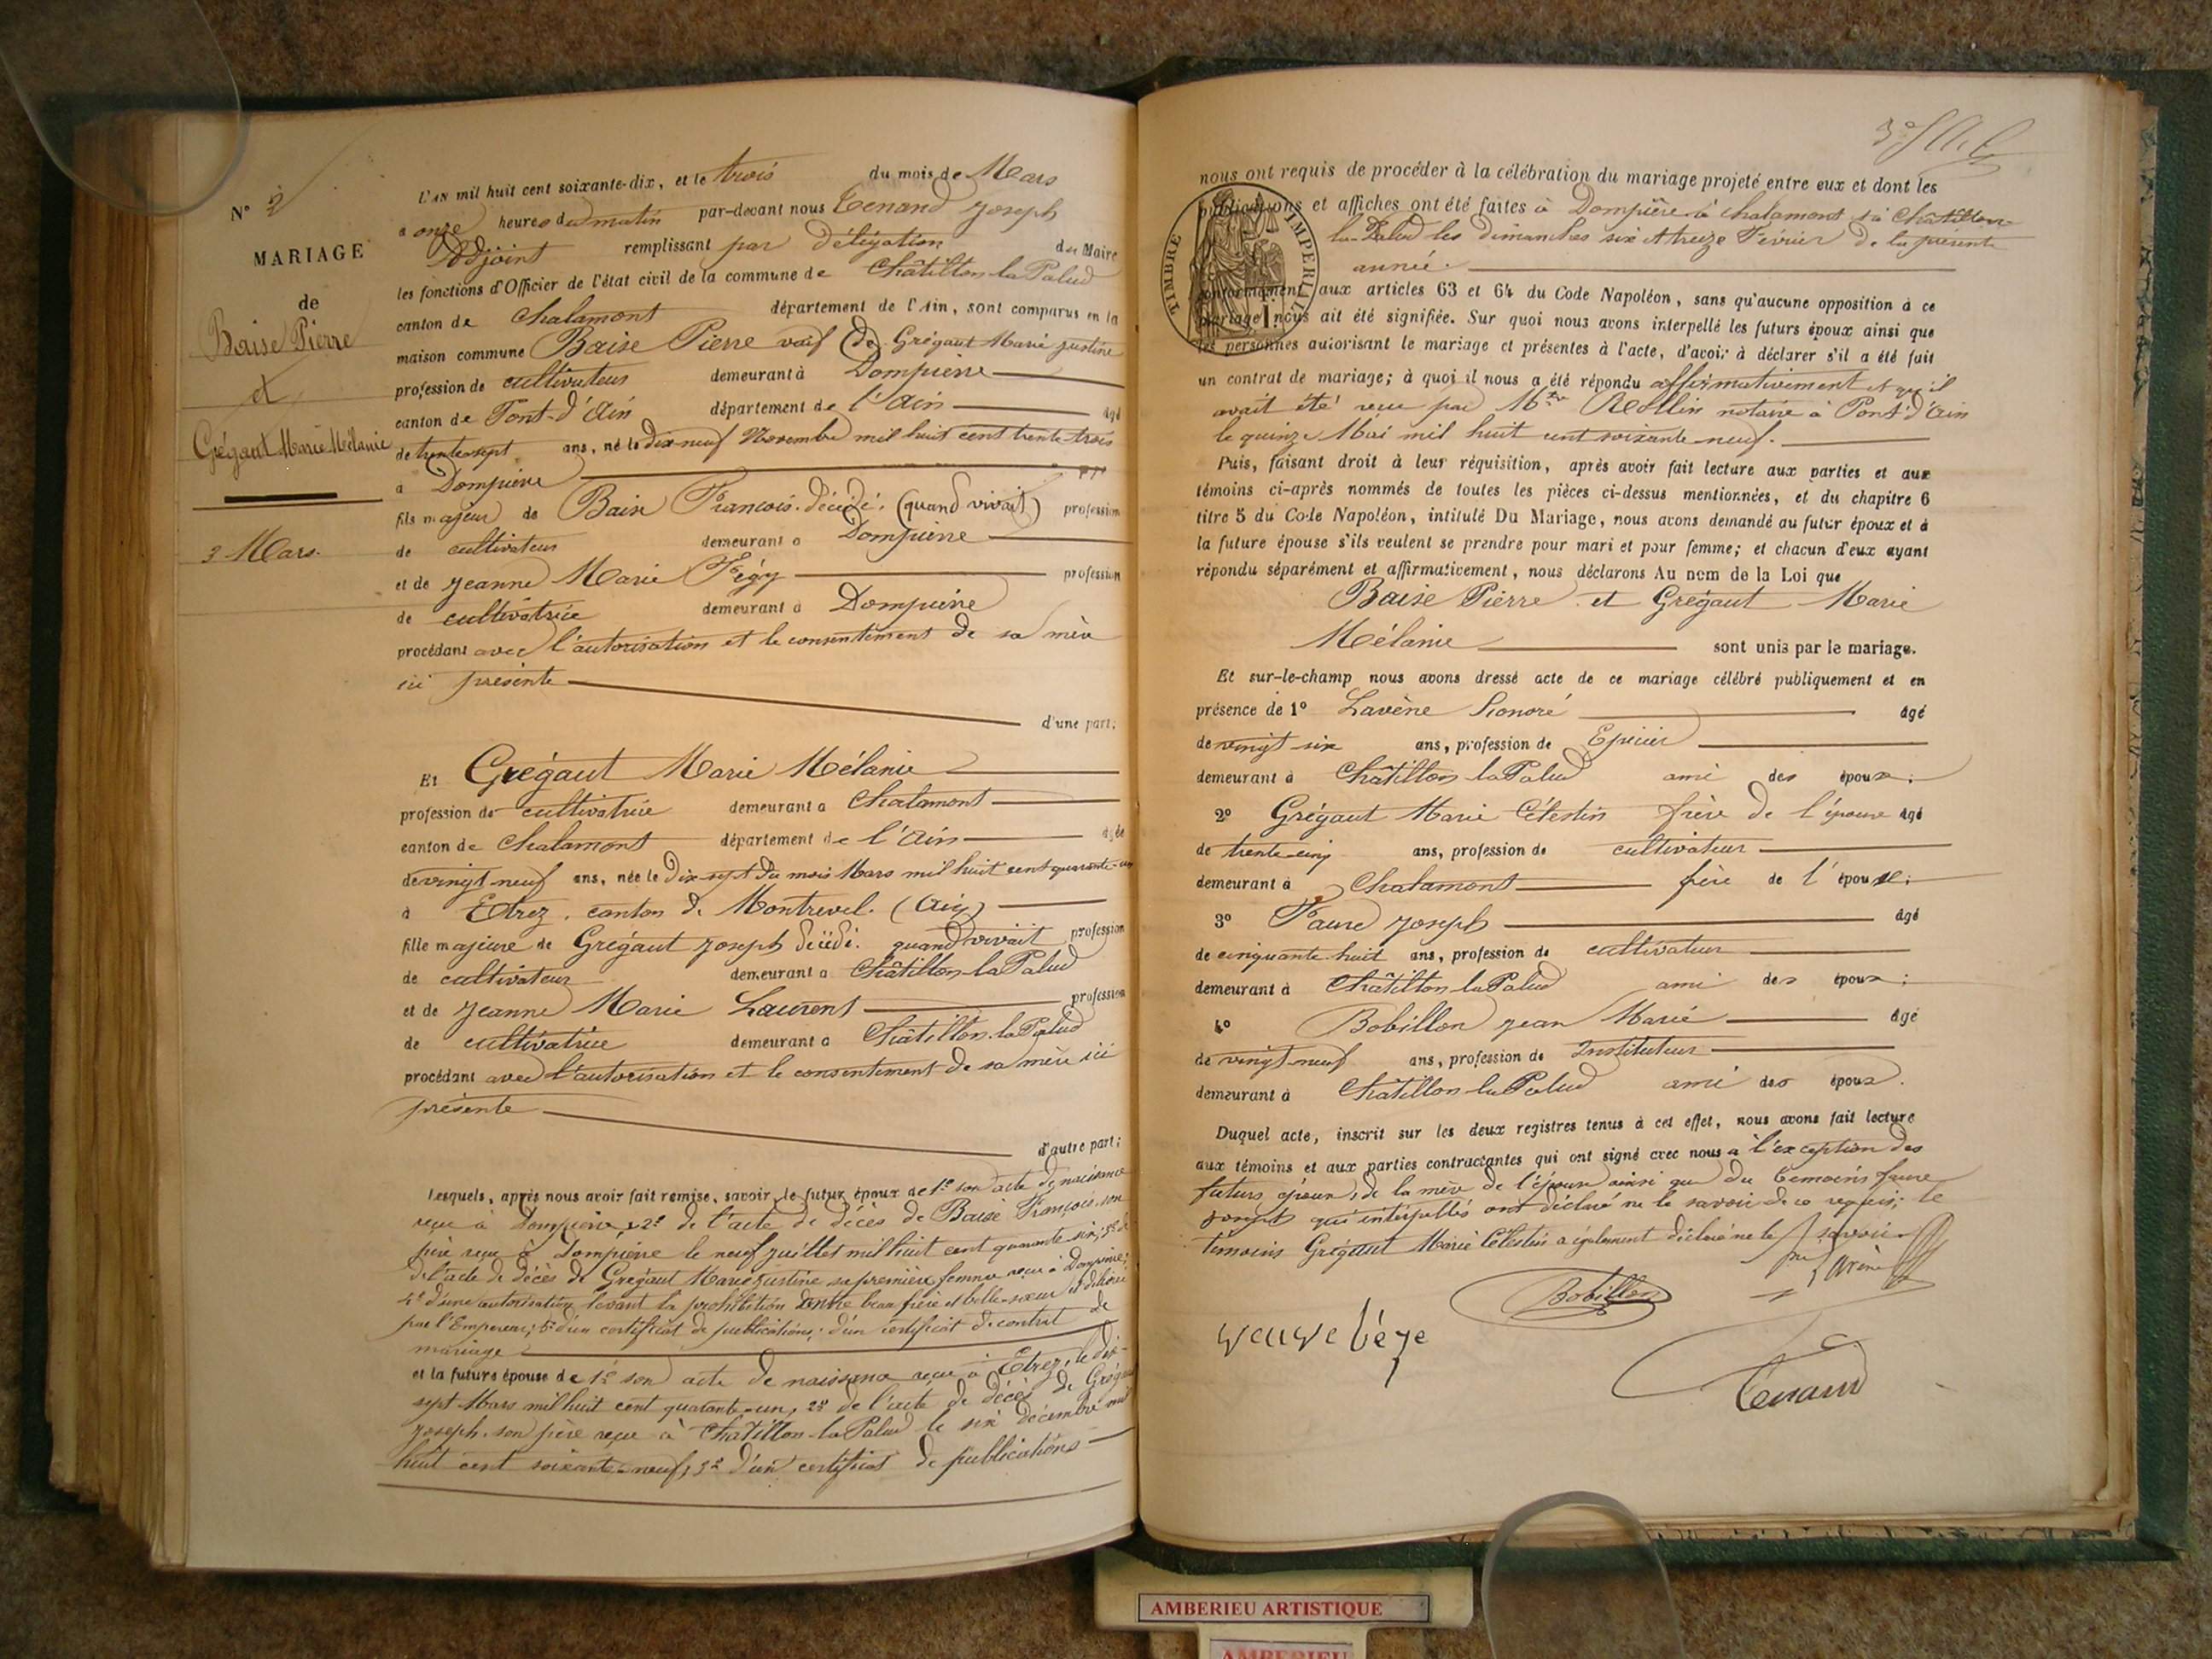 N° 2
MARIAGE
de
Baise Pierre
et
Grégaut Marie Mélanie
3 Mars.
L'AN mil huit cent soixante-dix, et le trois du mois de Mars
à onze heures du matin par-devant nous Tenand Joseph
Adjoint remplissant par délégation du Maire
les fonctions d'Officier de l'état civil de la commune de Châtillon la Palud
canton de Chalamont département de l'Ain, sont comparus en la
maison commune Baise Pierre veuf de Grégaut Marie Justine
profession de cultivateur demeurant à Dompierre
canton de Pont-d'Ain département de l'Ain âgé
de trente sept ans, né le dix neuf Novembre mil huit cent trente trois
à Dompierre
fils majeur de Baise François décédé, (quand vivait) profession
de cultivateur demeurant à Dompierre
et de Jeanne Marie Fégy profession
de cultivatrice demeurant à Dompierre
procédant avec l'autorisation et le consentement de sa mère
ici présente
d'une part;
Et Grégaut Marie Mélanie
profession de cultivatrice demeurant à Chalamont
canton de Chalamont département de l'Ain âgée
de vingt neuf ans, née le dix-sept du mois Mars mil huit cent quarante-un
à Etrez, canton de Montrevel. (Ain)
fille majeure de Grégaut Joseph décédé. quand vivait profession
de cultivateur demeurant à Châtillon-la Palud
et de Jeanne Marie Laurent profession
de cultivatrice demeurant à Châtillon-la Palud
procédant avec l'autorisation et le consentement de sa mère ici
présente
d'autre part;
Lesquels, après nous avoir fait remise, savoir, le futur époux de 1° son acte de naissance
reçu à Dompierre, 2° de l'acte de décès de Baise François, son
père reçu à Dompierre le neuf Juillet mil huit cent quarante six; 3° de
de l'acte de décès de Grégaut Marie Justine sa première femme reçu à Dompierre;
4° d'une autorisation levant la prohibition entre beau frère et belle-sœur et délivré
par l'Empereur; 5° d'un certificat de publications; d'un certificat de contrat de
mariage
et la future épouse de 1° son acte de naissance reçu à Etrez, le dix-
sept Mars mil huit cent quarante-un, 2° de l'acte de décès de Grégaut
Joseph son père reçu à Châtillon-la Palud le six décembre mil
huit cent soixante-neuf; 3° d'un certificat de publications
nous ont requis de procéder à la célébration du mariage projeté entre eux et dont les
publications et affiches ont été faites à Dompierre à Chalamont et à Châtillon-
la-Palud les dimanches six et treize Février de la présente
année.
TIMBRE IMPERIAL
conformément aux articles 63 et 64 du Code Napoléon, sans qu'aucune opposition à ce
mariage nous ait été signifiée. Sur quoi nous avons interpellé les futurs époux ainsi que
les personnes autorisant le mariage et présentes à l'acte, d'avoir à déclarer s'il a été fait
un contrat de mariage; à quoi il nous a été répondu affirmativement et qu'il
avait été reçu par Me Rollin notaire à Pont-d'Ain
le quinze Mai mil huit cent soixante-neuf.
Puis, faisant droit à leur réquisition, après avoir fait lecture aux parties et aux
témoins ci-après nommés de toutes les pièces ci-dessus mentionnées, et du chapitre 6
titre 5 du Code Napoléon, intitulé Du Mariage, nous avons demandé au futur époux et à
la future épouse s'ils veulent se prendre pour mari et pour femme; et chacun d'eux ayant
répondu séparément et affirmativement, nous déclarons Au nom de la Loi que
Baise Pierre et Grégaut Marie
Mélanie sont unis par le mariage.
Et sur-le-champ nous avons dressé acte de ce mariage célébré publiquement et en
présence de 1° Lavène Honoré âgé
de vingt six ans, profession de Epicier
demeurant à Châtillon la Palud ami des époux;
2° Grégaut Marie Célestin frère de l'épouse âgé
de trente cinq ans, profession de cultivateur
demeurant à Chalamont frère de l'épouse;
3° Faure Joseph âgé
de cinquante huit ans, profession de cultivateur
demeurant à Châtillon la Palud ami des époux;
4° Bobillon Jean Marie âgé
de vingt neuf ans, profession de Instituteur
demeurant à Châtillon la Palud ami des époux.
Duquel acte, inscrit sur les deux registres tenus à cet effet, nous avons fait lecture
aux témoins et aux parties contractantes qui ont signé avec nous à l'exception des
futurs époux, de la mère de l'épouse ainsi que du témoins faure
joseph qui interpellés ont déclaré ne le savoir de ce requis; le
témoins Grégaut Marie Célestin a également déclaré ne le savoir.
Bobillon
veuve béje
Tenand
AMBERIEU ARTISTIQUE
AMBERIEU